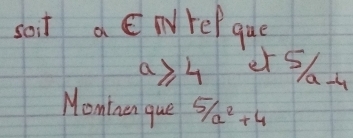 soit a ∈ IN tel que
a ⩾ 4 et 5/a-4
Montrer que 5/a²+4